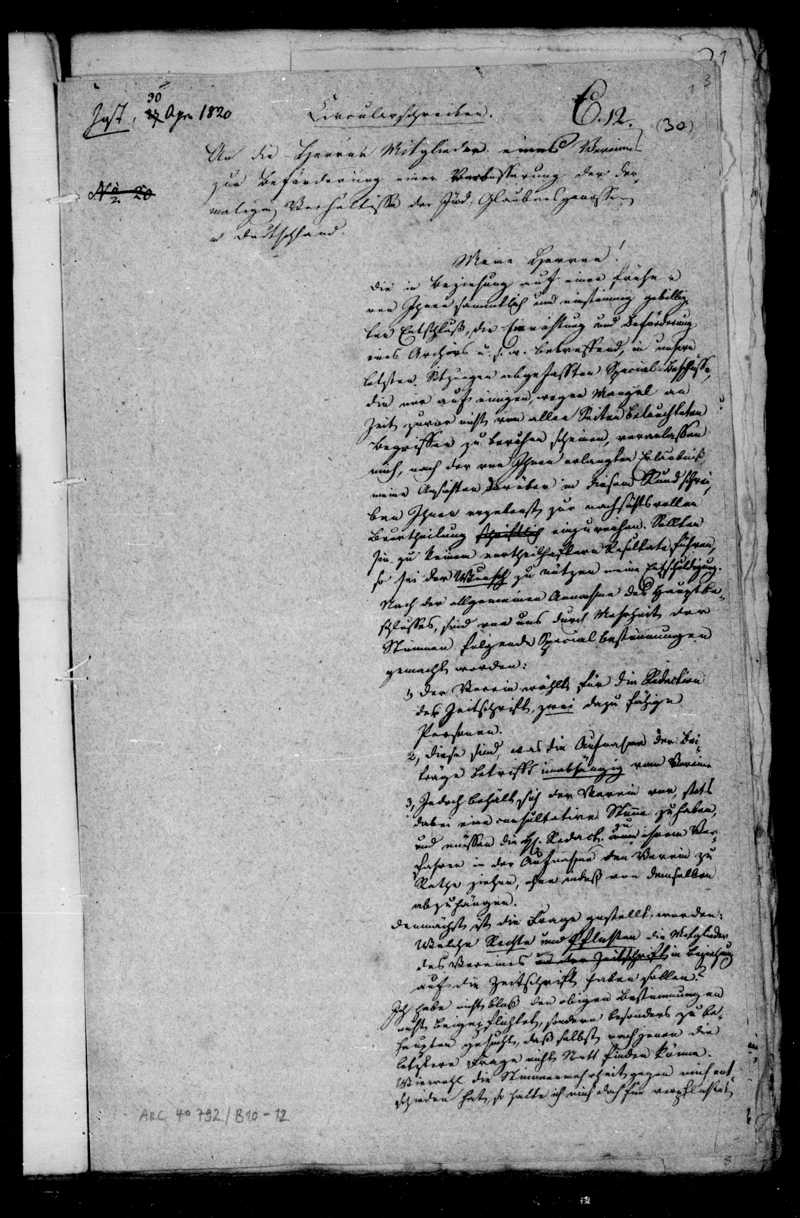 21
3
Jost, 30 Apr. 1820
Circularschreiben.
C. 12.
(30)
An die Herren Mitglieder eines Vereins
No 2. 20
zur Beförderung einer Verbesserung der der-
maligen Verhältnisse der Jüd. Glaubensgenossen
in Deutschland.
Meine Herren!
Die in Beziehung auf einen frühern
von Ihnen sämmtlich und einstimmig gebillig-
ten Entschluß, die Einrichtung und Beförderung
eines Archivs u. s. w. betreffend, in unsern
letzten Sitzungen abgefassten Special-Beschlüsse,
die nur auf einigen, wegen Mangel an
Zeit zuvor nicht von allen Seiten beleuchteten
Begriffen zu beruhen scheinen, veranlassen
mich, nach der von Ihnen erlangten Erlaubniß
meine Ansichten darüber in diesem Rundschrei-
ben Ihnen ergebenst zur nachsichtsvollen
Beurtheilung schriftlich einzureichen. Sollten
sie zu keinem vortheilhaftern Resultate führen,
so sei der Wunsch zu nützen meine Entschuldigung.
Nach der allgemeinen Annahme des Hauptbe-
schlusses, sind von uns durch Mehrheit der
Stimmen folgende Specialbestimmungen
gemacht worden:
1, Der Verein wählt für die Redaction
der Zeitschrift, zwei dazu fähige
Personen.
2, diese sind, was die Aufnahme der Bei-
träge betrifft unabhängig vom Verein
3, Jedoch behält sich der Verein vor, stets
dabei eine consultative Stimme zu haben,
und müssen die H. Redact. von ihrem Ver-
fahren in der Aufnahme den Verein zu
Rathe ziehen, ohne indeß von demselben
abzuhängen.
Demnächst ist die Frage gestellt worden:
Welche Rechte und Pflichten die Mitglieder
des Vereines in der Zeitschrift in Beziehung
auf die Zeitschrift haben sollen?
Ich habe nicht bloß den obigen Bestimmungen
nicht beigepflichtet, sondern besonders zu be-
haupten gesucht, daß selbst nach jenen die
letztere Frage nicht Statt finden könne.
Wiewohl die Stimmenmehrheit gegen mich ent-
schieden hat, so halte ich mich doch für verpflichtet
ARC 4° 792/B10-12